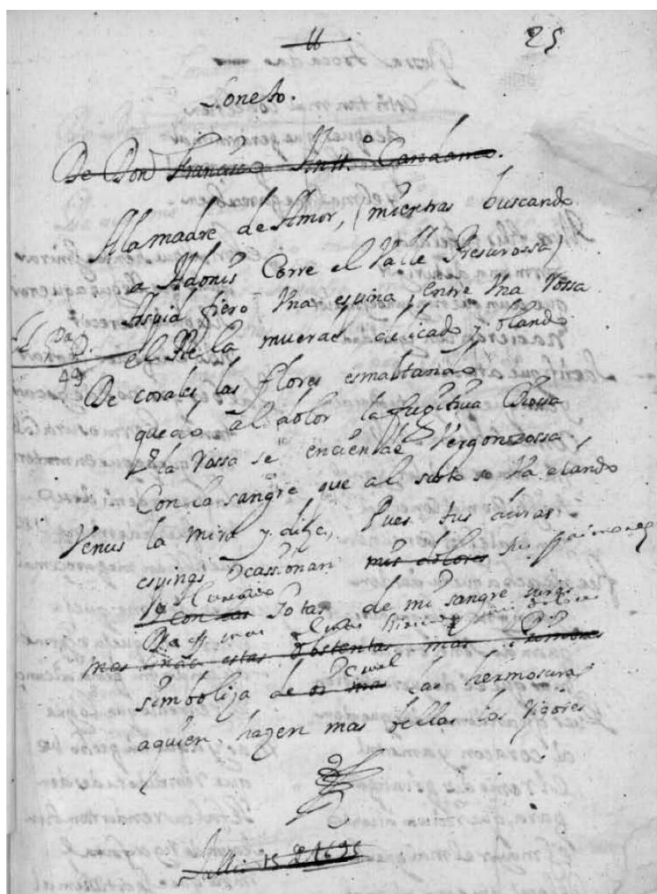 25
Soneto.
De Don Francisco Antt.o Candamo.
A la madre de Amor, mientras buscando
a Adonis Corre el Valle Presurossa,
Aspid fiero Vna espina, entre Vna Rossa
el Pie la muerde, delicado y blando
De corales las flores esmaltando
quedò al dolor la fugitiua Diossa
y la Rossa se enciende Vergonzossa,
Con la sangre que al susto se Va elando
Venus la mira y dize, Pues tus duras
espinas Ocassionan mis dolores
y con Gotas de mi sangre
mas ostentas mas
simboliza de la hermosura
a quien hazen mas bellas los Rigores